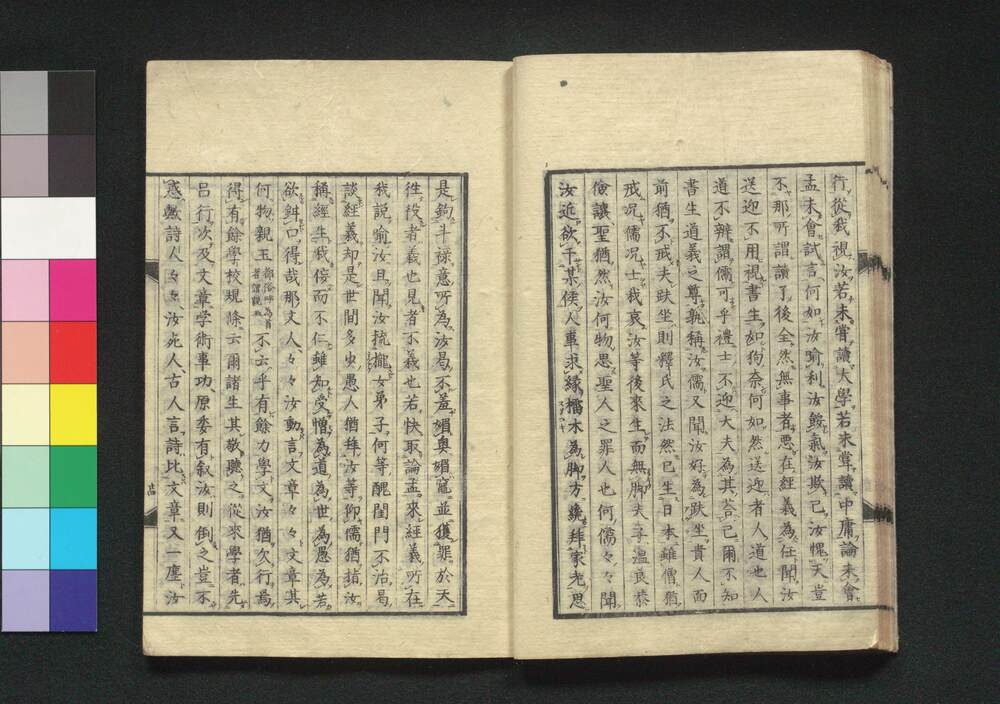 行從我視汝若未嘗讀大學若未嘗讀中庸論未會
孟未會試言何如汝喻利汝餒氣汝欺己汝愧天豈
不那所謂讀了後全然無事者悪在經義為任聞汝
送迎不用視書生如狗奈何如然送迎者人道也人
道不辨謂儒可乎禮士不迎大夫為其荅己爾不知
書生道義之尊孰稱汝儒又聞汝好為趺坐貴人而
前猶不戒夫趺坐則釋氏之法然已生日本雖僧猶
戒况儒况士我哀汝等後來生而無脚夫子温良恭
儉讓聖猶然汝何物思聖人之罪人也何儒々々聞
汝近欲干某侯人車求縁擂木為脚方纔拜家老思
是鉤斗禄意所為汝曷不羞媚奥媚竈並獲罪於天
徃役者義也見者不義也若快取論孟來經義所在
我説喻汝且聞汝摭
女弟子何等醜閨門不治曷
談經義却是世間多虫愚人猶拜汝等仰儒猶指汝
稱經生我傍而不仁雖知受憎為道為世為愚為若
欲
口得哉那文人々々汝動言文章々々文章其
何物親玉
不云乎有餘力學文汝猶欠行為
得有餘學校規除云爾諸生其敬聽之從來學者先
呂行次及文章学術事功原委有叙汝則倒之豈不
惑
詩人々々汝死人古人言詩比文章又一塵汝